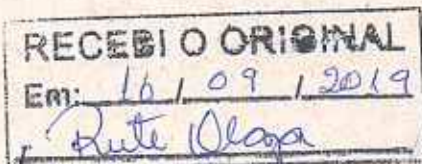 RECEBI O ORIGINAL
Em: 16 / 09 / 2019
Rute